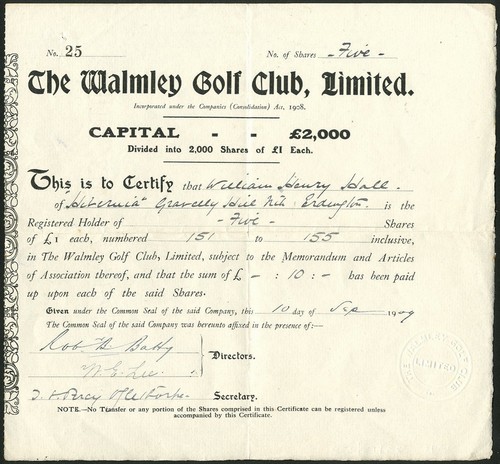 No. 25 No. of Shares - Five -
The Walmley Golf Club, Limited.
Incorporated under the Companies (Consolidation) Act, 1908.
CAPITAL - - £2,000
Divided into 2,000 Shares of £1 Each.
This is to Certify that William Henry Hall.
of "Hibernia" Gravelly Hill Nth. Erdington. is the
Registered Holder of - Five - Shares
of £1 each, numbered 151 to 155 inclusive,
in The Walmley Golf Club, Limited, subject to the Memorandum and Articles
of Association thereof, and that the sum of £ - : 10 : - has been paid
up upon each of the said Shares.
Given under the Common Seal of the said Company, this 10 day of Sep 1909
The Common Seal of the said Company was hereunto affixed in the presence of:—
Directors.
W. E. Lee
Percy Secretary.
NOTE.—No Transfer or any portion of the Shares comprised in this Certificate can be registered unless
accompanied by this Certificate.
THE WALMLEY GOLF CLUB
LIMITED